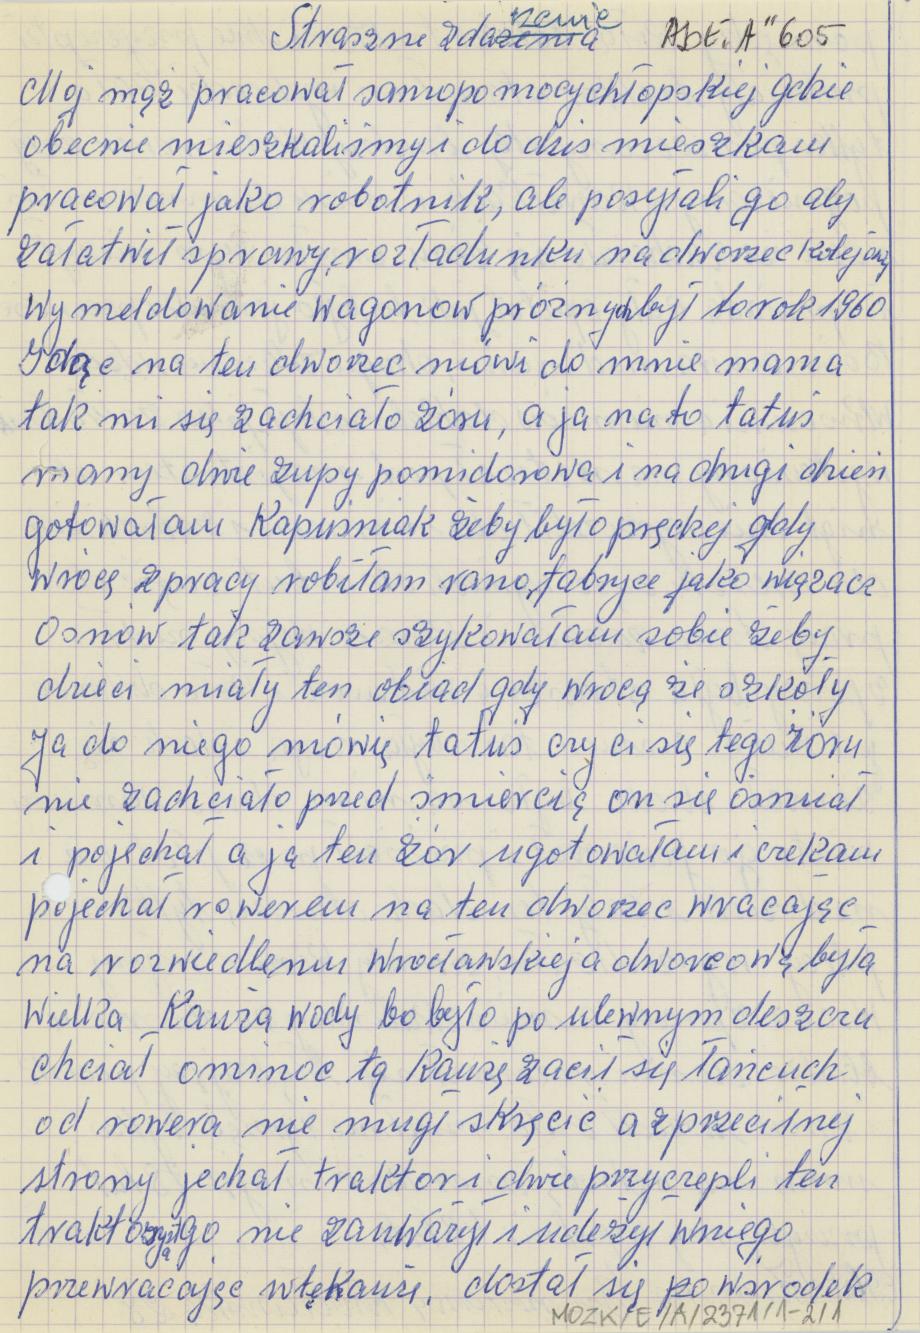 Straszne zdażenia rzenie ADE. A" 605
Mój mąż pracował samopomocychłopskiej gdzie
obecnie mieszkaliśmy i do dzis mieszkam
pracował jako robotnik, ale posyłali go aby
załatwił sprawy, rozładunku na dworzec kolejowy
Wymeldowanie wagonow próżnych był to rok 1960
Idąc na ten dworzec mówi do mnie mama
tak mi się zachciało żóru, a ja na to tatuś
mamy dwie zupy pomidorowa i na drugi dzień
gotowałam Kapuśniak żeby było prędzej gdy
wrócę z pracy robiłam rano, fabryce jako wiązacz
Osnów tak zawsze szykowałam sobie żeby
dzieci miały ten obiad gdy wrocą ze szkoły
Ja do niego mówię tatuś czy ci się tego żóru
nie zachciało przed śmiercią on się ósmiał
i pojechał a ja ten żór ugotowałam i czekam
pojechał rowerem na ten dworzec wracając
na rozwiedleniu Wrocławskiej a dworcową była
Wielka Kauża wody bo było po ulewnym deszczu
chciał ominoc tą Kaużę zacił się łańcuch
od rowera nie mugł skręcić a z przecitnej
strony jechał traktor i dwie przyczepli ten
traktorzysta go nie zauważył i udeżył wniego
przewracając w tę kauże, dostał się po wśrodek
MOZK/E/A/2371/1-2/1